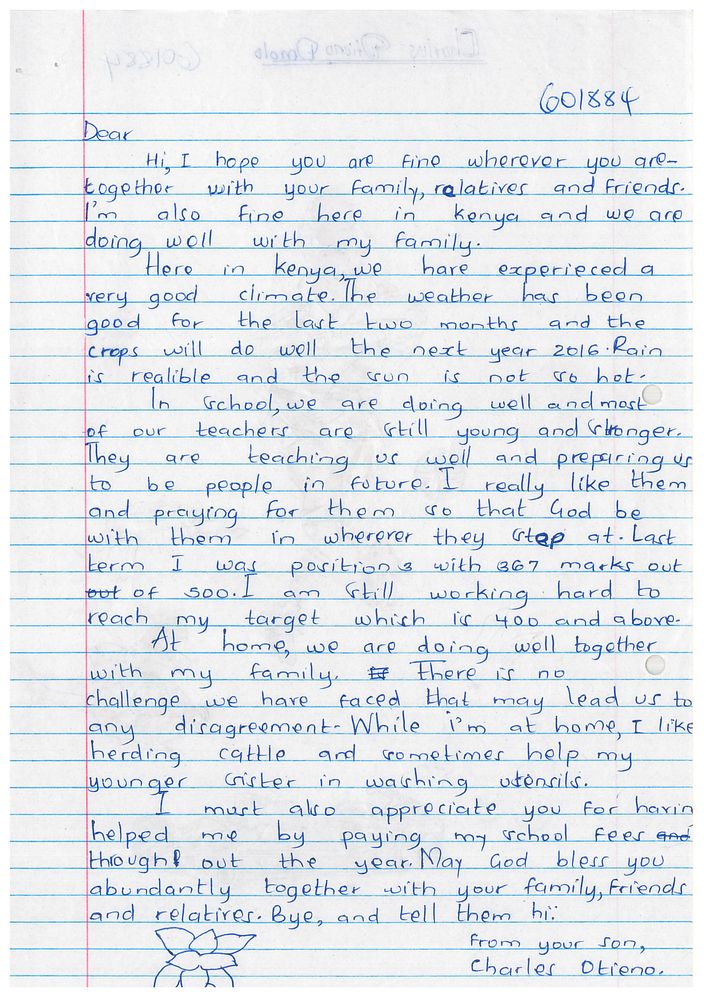 601884
Dear
Hi, I hope you are fine wherever you are-
together with your family, relatives and friends.
I'm also fine here in kenya and we are
doing well with my family.
Here in kenya, we have experieced a
very good climate. The weather has been
good for the last two months and the
crops will do well the next year 2016. Rain
is realible and the sun is not so hot.
In school, we are doing well and most
of our teachers are still young and stronger.
They are teaching us well and preparing us
to be people in future. I really like them
and praying for them so that God be
with them in wherever they stop at. Last
term I was position 3 with 367 marks out
out of 500. I am still working hard to
reach my target which is 400 and above.
At home, we are doing well together
with my family. There is no
challenge we have faced that may lead us to
any disagreement. While i'm at home, I like
herding cattle and sometimes help my
younger sister in washing utensils.
I must also appreciate you for havin
helped me by paying my school fees and
through out the year. May God bless you
abundantly together with your family, friends
and relatives. Bye, and tell them hi:
From your son,
Charles Otieno.